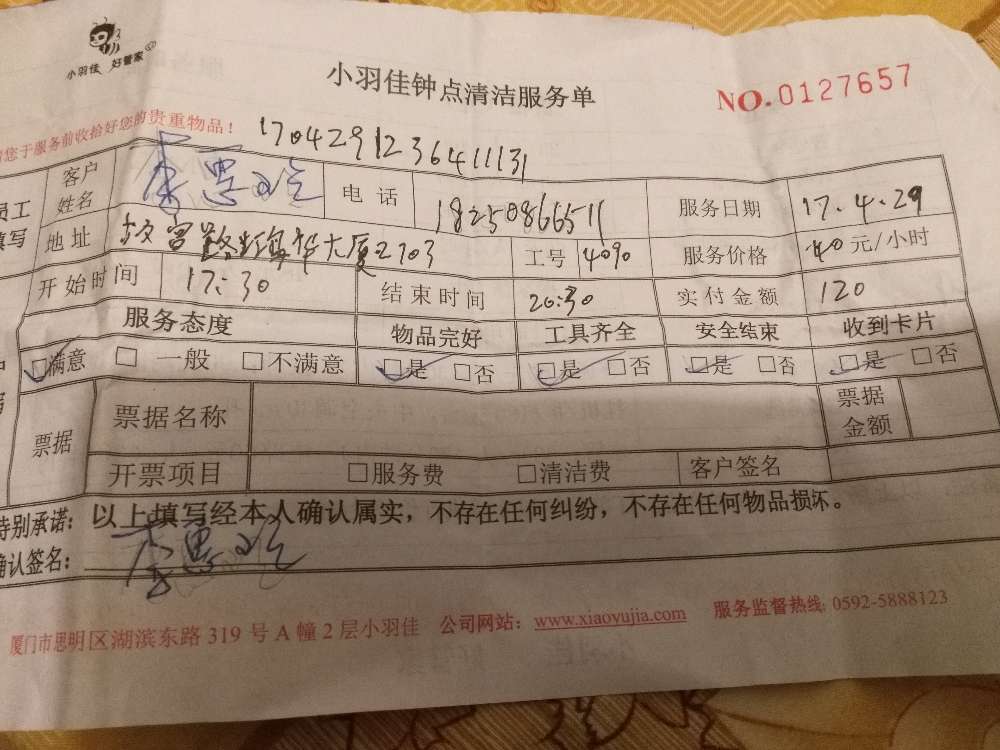 小羽佳 好管家
小羽佳钟点清洁服务单
NO.0127657
您于服务前收拾好您的贵重物品！
170429123641131
员工填写
客户姓名
电话 18250866511 服务日期 17.4.29
地址 大厦2703 工号 4090 服务价格 40元/小时
开始时间 17:30 结束时间 20:30 实付金额 120
服务态度 物品完好 工具齐全 安全结束 收到卡片
□满意 □一般 □不满意 □是 □否 □是 □否 □是 □否 □是 □否
票据 票据名称 票据金额
开票项目 □服务费 □清洁费 客户签名
特别承诺：以上填写经本人确认属实，不存在任何纠纷，不存在任何物品损坏。
确认签名：
厦门市思明区湖滨东路319号A幢2层小羽佳 公司网站：www.xiaoyujia.com 服务监督热线：0592-5888123